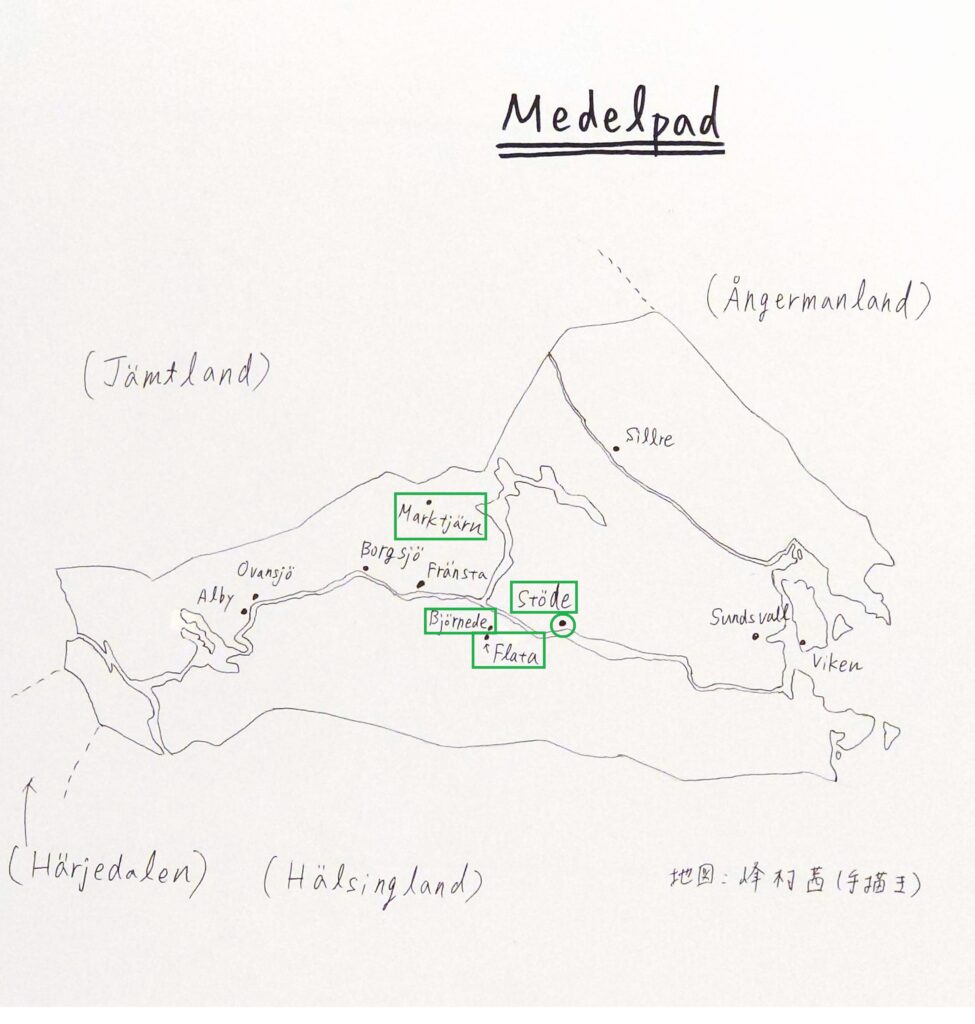 Medelpad
(Ångermanland)
(Jämtland)
Sillre
Marktjärn
Borgsjö
Ovansjö
Fränsta
Alby
Stöde
Björnede
Sundsvall
Flata
Viken
(Härjedalen)
(Hälsingland)
地図:峰村茜(手描き)